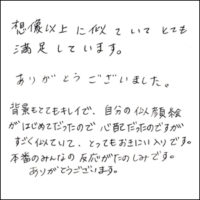 想像以上に似ていてとても
満足しています。
ありがとうございました。
背景もとてもキレイで、自分の似顔絵
がはじめてだったので心配だったのですが
すごく似ていて、とってもおきにいりです。
本番のみんなの反応がたのしみです。
ありがとうございます。